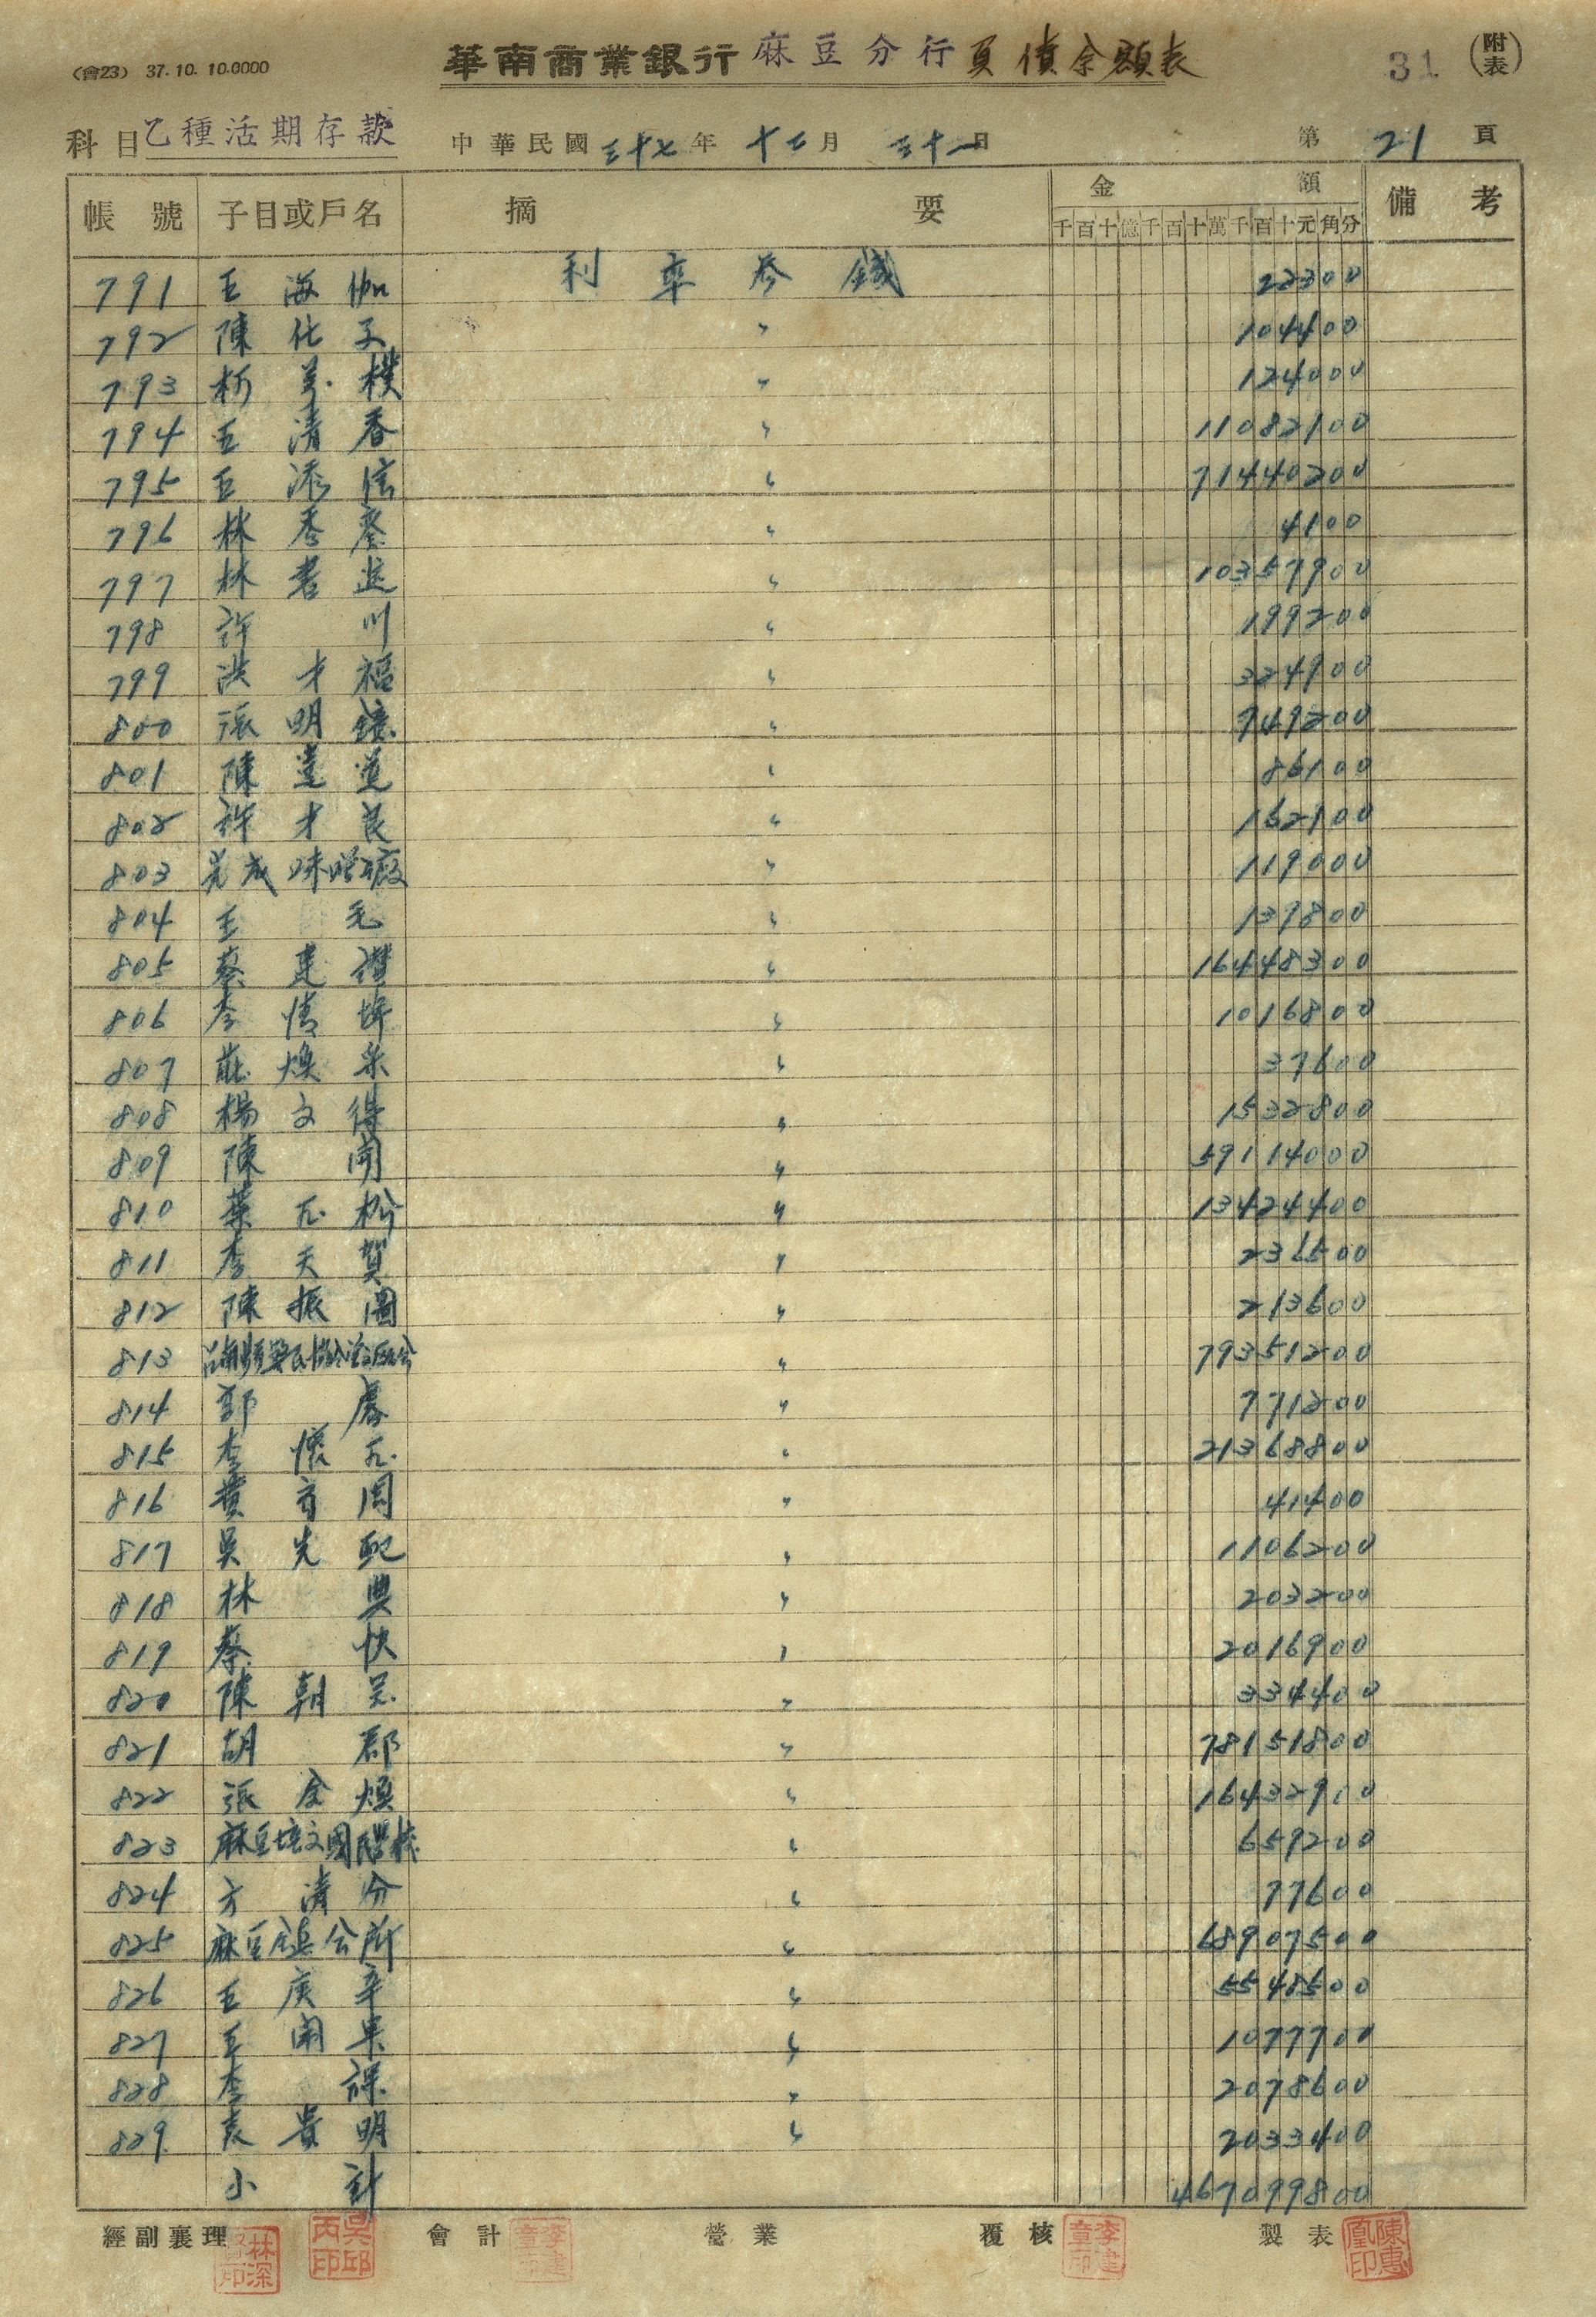 (會23) 37. 10. 10.0000 華南商業銀行 麻豆分行 負債余額表 31 (附表)
科目 乙種活期存款 中華民國 三十七 年 十二 月 三十一 日 第 21 頁
帳號 子目或戶名 摘要 金額 備考
千百十億千百十萬千百十元角分
791 王海 利率參錢 22300
792 陳化 〃 104400
793 〃 124000
794 王清春 〃 11082100
795 王添信 〃 71440200
796 林秀 〃 4100
797 林 〃 10357900
798 許川 〃 199200
799 洪才福 〃 324900
800 張明鐘 〃 949200
801 陳達道 〃 86100
802 許才良 〃 162100
803 光成味噌廠 〃 119000
804 王毛 〃 139800
805 蔡建讚 〃 16448300
806 李情 〃 1016800
807 莊煥 〃 37600
808 楊文得 〃 1532800
809 陳開 〃 59114000
810 葉瓦松 〃 13424400
811 李天賀 〃 236500
812 陳振圖 〃 213600
813 〃 79351200
814 郭 〃 771200
815 李懷 〃 21368800
816 黃 〃 41400
817 吳光配 〃 1106200
818 林興 〃 203200
819 蔡快 〃 2016900
820 陳朝 〃 334400
821 胡郡 〃 78151800
822 張金煥 〃 16432900
823 麻豆培文國校 〃 659200
824 方清分 〃 77600
825 麻豆鎮公所 〃 68907500
826 王庚辛 〃 5548500
827 王開東 〃 1077700
828 李課 〃 2078600
829 袁貴明 〃 2033400
小計 467099800
經副襄理 會計 營業 覆核 製表
林深 吳邱丙印 李建章印 李建章印 陳惠凰印